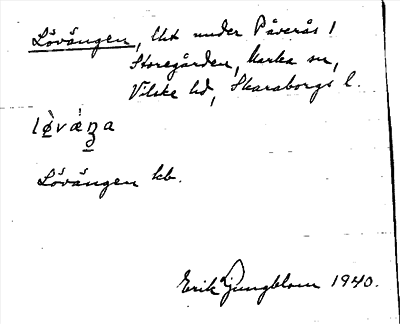 Lövängen, lht under Påverås 1
Storegården, Marka sn,
Vilske hd, Skaraborgs l.
lø̀væ̀ŋa
Lövängen kb.
Erik Ljungblom 1940.